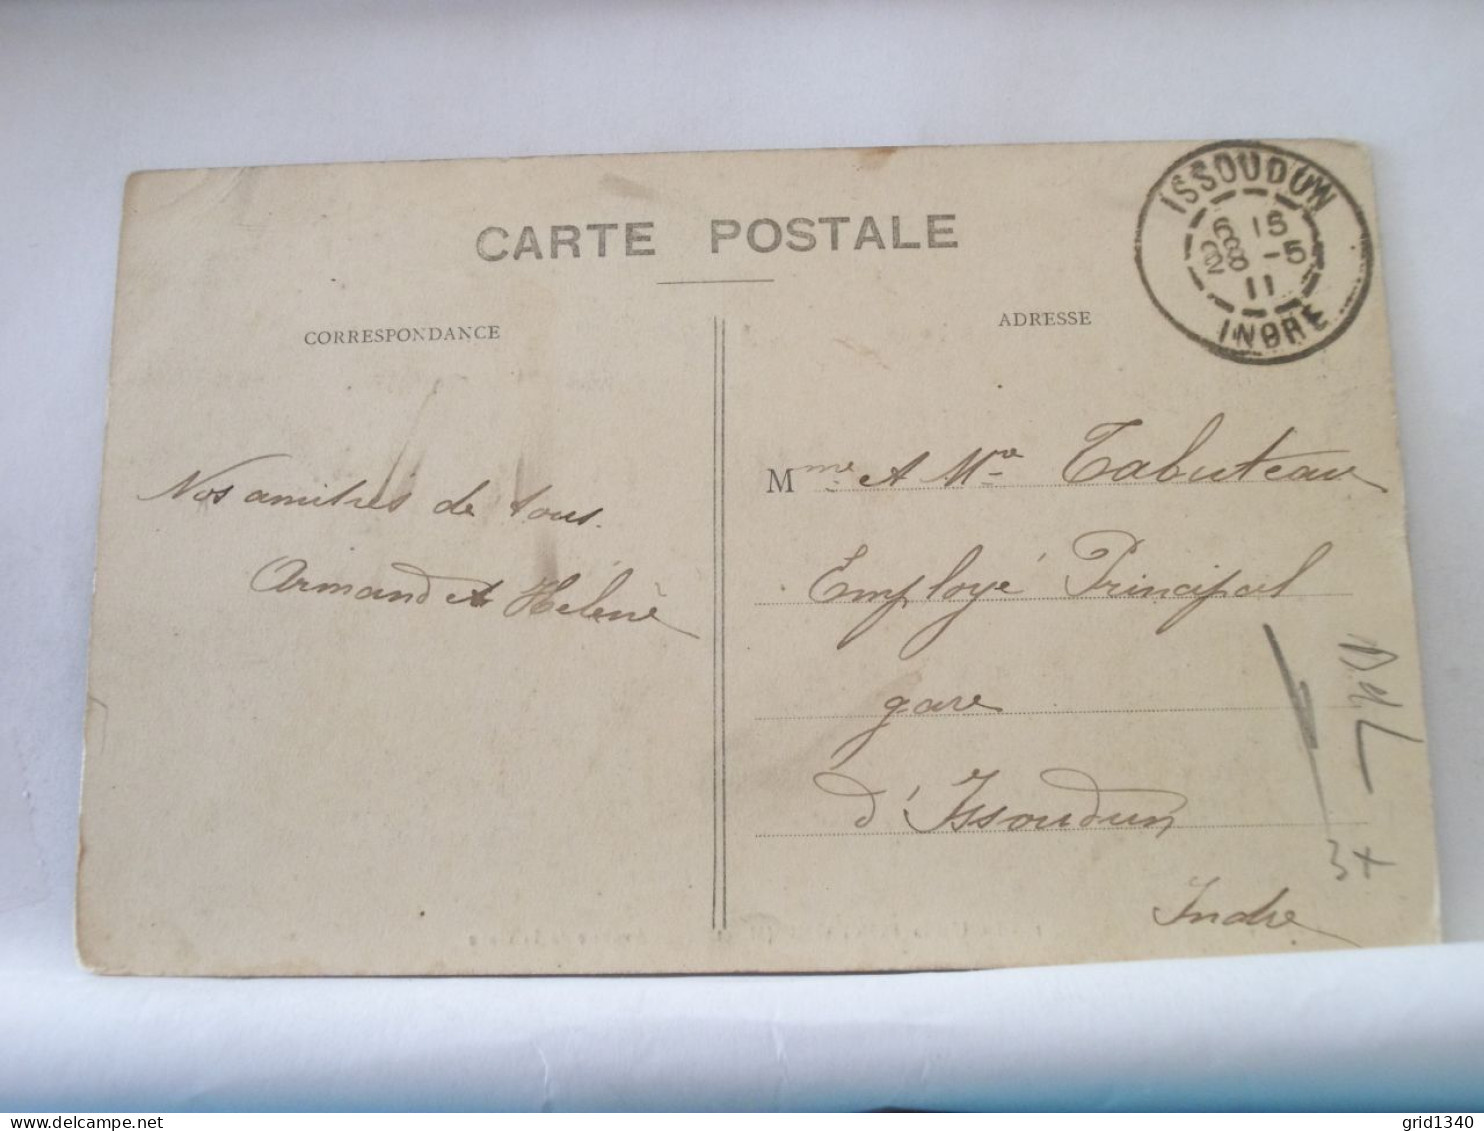 CARTE POSTALE
CORRESPONDANCE
ADRESSE
ISSOUDUN
6 15
8 -5
11
INDRE
Nos amitiés de tous.
Armand et Hélène
Mme et Mr Tabuteau
Employé Principal
gare
d'Issoudun
Indre
3+
grid1340